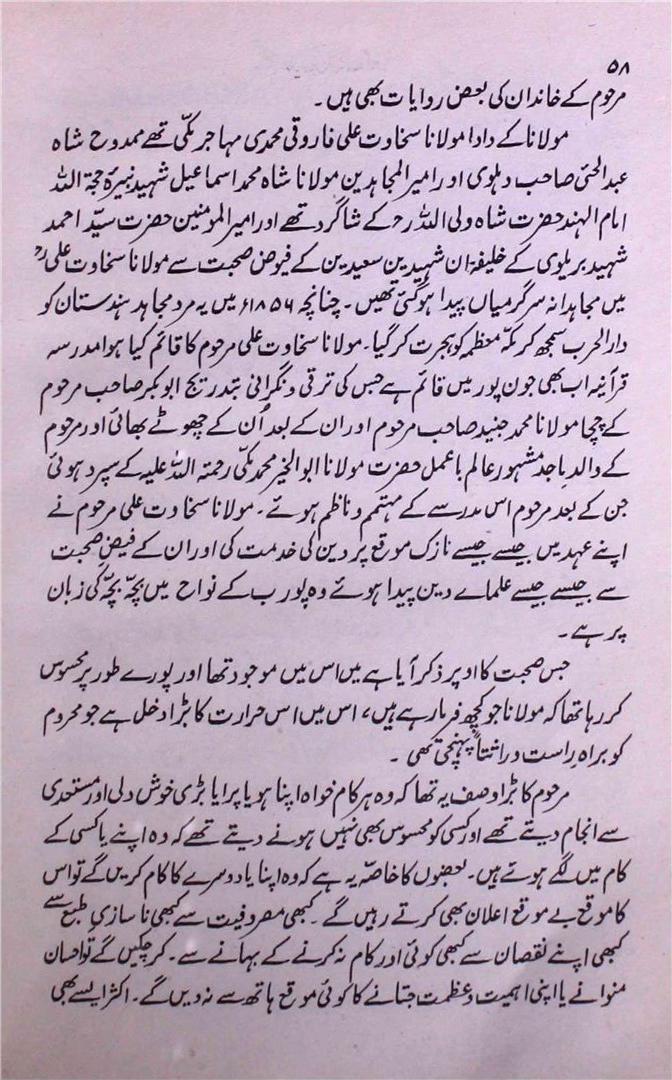 ۵۸
مرحوم کے خاندان کی بعض روایات بھی ہیں۔
مولانا کے دادا مولانا سخاوت علی فاروقی محمدی مہاجر مکّی تھے ممدوح شاہ
عبدالحیٔ صاحب دہلوی اور امیر المجاہدین مولانا شاہ محمد اسماعیل شہید نبیرۂ حجۃ اللہ
امام الہند حضرت شاہ ولی اللہ رح کے شاگرد تھے اور امیر المومنین حضرت سیّد احمد
شہید بریلوی کے خلیفہ ان شہیدین سعیدین کے فیوض صحبت سے مولانا سخاوت علی رح
میں مجاہدانہ سرگرمیاں پیدا ہوگئی تھیں۔ چنانچہ ۱۸۵۶ء میں یہ مرد مجاہد ہندستان کو
دارالحرب سمجھ کر مکّہ معظمہ کو ہجرت کر گیا۔ مولانا سخاوت علی مرحوم کا قائم کیا ہوا مدرسہ
قرآنیہ اب بھی جون پور میں قائم ہے جس کی ترقی و نگرانی بتدریج ابوبکر صاحب مرحوم
کے چچا مولانا محمد جنید صاحب مرحوم اور ان کے بعد اُن کے چھوٹے بھائی اور مرحوم
کے والد ماجد مشہور عالم باعمل حضرت مولانا ابوالخیر محمد مکّی رحمتہ اللہ علیہ کے سپرد ہوئی
جن کے بعد مرحوم اس مدرسے کے مہتمم و ناظم ہوئے۔ مولانا سخاوت علی مرحوم نے
اپنے عہد میں جیسے جیسے نازک موقع پر دین کی خدمت کی اور ان کے فیض صحبت
سے جیسے جیسے علماے دین پیدا ہوئے وہ پورب کے نواح میں بچّہ بچّہ کی زبان
پر ہے۔
جس صحبت کا اوپر ذکر آیا ہے میں اس میں موجود تھا اور پورے طور پر محسوس
کر رہا تھا کہ مولانا جو کچھ فرما رہے ہیں، اس میں اس حرارت کا بڑا دخل ہے جو مرحوم
کو براہ راست وراثتاً پہنچی تھی۔
مرحوم کا بڑا وصف یہ تھا کہ وہ ہر کام خواہ اپنا ہو یا پرایا بڑی خوش دلی اور مستعدی
سے انجام دیتے تھے اور کسی کو محسوس بھی نہیں ہونے دیتے تھے کہ وہ اپنے یا کسی کے
کام میں لگے ہوئے ہیں۔ بعضوں کا خاصّہ یہ ہے کہ وہ اپنا یا دوسرے کا کام کریں گے تو اس
کا موقع بے موقع اعلان بھی کرتے رہیں گے۔ کبھی مصروفیت سے کبھی ناسازیِ طبع سے
کبھی اپنے نقصان سے کبھی کوئی اور کام نہ کرنے کے بہانے سے۔ کر چکیں گے تو احسان
منوانے یا اپنی اہمیت و عظمت جتانے کا کوئی موقع ہاتھ سے نہ دیں گے۔ اکثر ایسے بھی